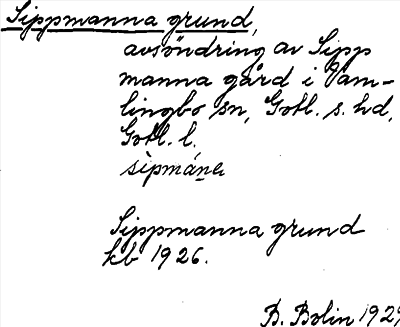 Sippmanna grund,
avsöndring av Sipp
manna gård i Vam-
lingbo sn, Gotl. s. hd,
Gotl. l.
sipmána
Sippmanna grund
kb 1926.
B. Bolin 1929